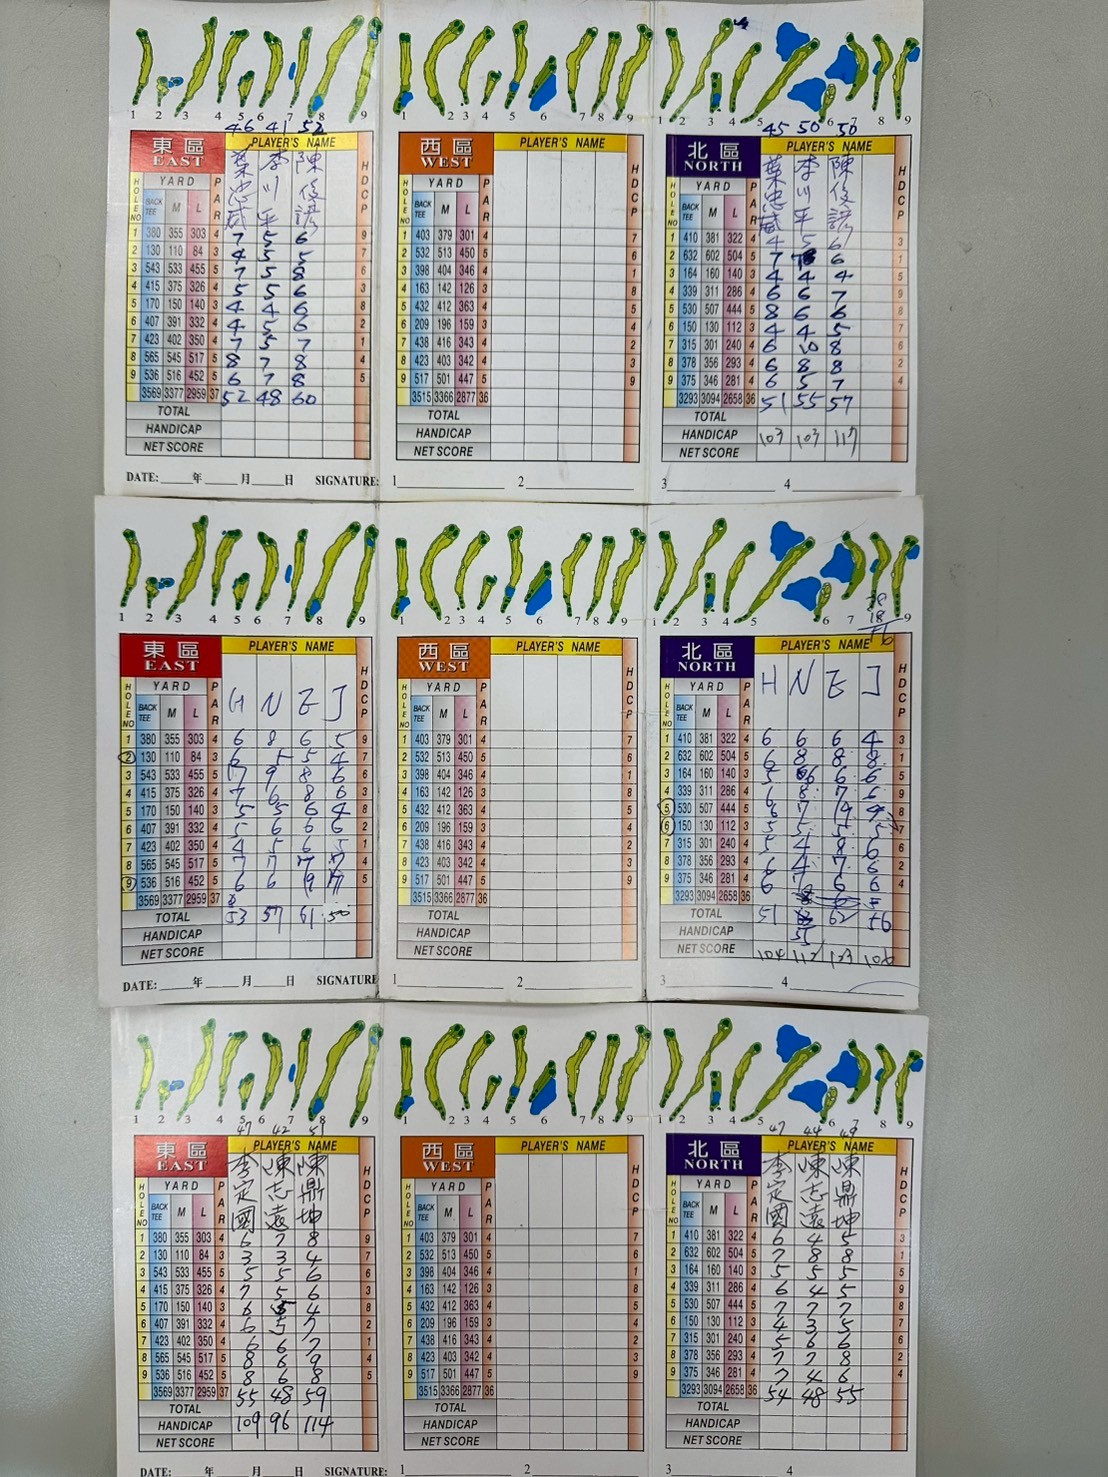 1 2 3 4 5 6 7 8 9
46 41 52
東區 PLAYER'S NAME
EAST
葉忠威 李川平 陳俊諺
HOLE NO YARD BACK TEE M L PAR HDCP
1 380 355 303 4 7 5 6 9
2 130 110 84 3 4 5 5 7
3 543 533 455 5 7 5 8 6
4 415 375 326 4 5 5 6 3
5 170 150 140 3 4 4 6 8
6 407 391 332 4 4 5 6 2
7 423 402 350 4 7 5 7 1
8 565 545 517 5 8 7 8 4
9 536 516 452 5 6 7 8 5
3569 3377 2959 37 52 48 60
TOTAL
HANDICAP
NET SCORE
DATE: 年 月 日 SIGNATURE:
1 2 3 4 5 6 7 8 9
西區 PLAYER'S NAME
WEST
HOLE NO YARD BACK TEE M L PAR HDCP
1 403 379 301 4 7
2 532 513 450 5 6
3 398 404 346 4 1
4 163 142 126 3 8
5 432 412 363 4 5
6 209 196 159 3 4
7 438 416 343 4 2
8 423 403 342 4 3
9 517 501 447 5 9
3515 3366 2877 36
TOTAL
HANDICAP
NET SCORE
1 2
1 2 3 4 5 6 7 8 9
45 50 50
北區 PLAYER'S NAME
NORTH
葉忠威 李川平 陳俊諺
HOLE NO YARD BACK TEE M L PAR HDCP
1 410 381 322 4 4 5 6 3
2 632 602 504 5 7 6 1
3 164 160 140 3 4 4 4 5
4 339 311 286 4 6 6 7 9
5 530 507 444 5 8 6 6 8
6 150 130 112 3 4 4 5 7
7 315 301 240 4 6 10 8 6
8 378 356 293 4 6 8 8 2
9 375 346 281 4 6 5 7 4
3293 3094 2658 36 51 55 57
TOTAL
HANDICAP 103 103 117
NET SCORE
3 4
1 2 3 4 5 6 7 8 9
東區 PLAYER'S NAME
EAST
H N E J
HOLE NO YARD BACK TEE M L PAR HDCP
1 380 355 303 4 6 8 6 5 9
2 130 110 84 3 6 5 5 4 7
3 543 533 455 5 7 9 8 6 6
4 415 375 326 4 7 6 8 6 3
5 170 150 140 3 5 5 6 4 8
6 407 391 332 4 5 6 6 6 2
7 423 402 350 4 4 5 6 5 1
8 565 545 517 5 7 7 7 7 4
9 536 516 452 5 6 6 9 7 5
3569 3377 2959 37
TOTAL 53 57 61 50
HANDICAP
NET SCORE
DATE: 年 月 日 SIGNATURE
1 2 3 4 5 6 7 8 9
西區 PLAYER'S NAME
WEST
HOLE NO YARD BACK TEE M L PAR HDCP
1 403 379 301 4 7
2 532 513 450 5 6
3 398 404 346 4 1
4 163 142 126 3 8
5 432 412 363 4 5
6 209 196 159 3 4
7 438 416 343 4 2
8 423 403 342 4 3
9 517 501 447 5 9
3515 3366 2877 36
TOTAL
HANDICAP
NET SCORE
1 2
1 2 3 4 5 6 7 8 9
18
北區 PLAYER'S NAME
NORTH
H N E J
HOLE NO YARD BACK TEE M L PAR HDCP
1 410 381 322 4 6 6 6 4 3
2 632 602 504 5 6 8 8 8 1
3 164 160 140 3 5 6 6 6 5
4 339 311 286 4 6 8 7 6 9
5 530 507 444 5 6 7 9 9 8
6 150 130 112 3 5 5 5 5 7
7 315 301 240 4 5 4 8 6 6
8 378 356 293 4 6 4 7 6 2
9 375 346 281 4 6 7 6 6 4
3293 3094 2658 36
TOTAL 51 62 56
HANDICAP 55
NET SCORE 104 112 123 106
3 4
1 2 3 4 5 6 7 8 9
47 42 51
東區 PLAYER'S NAME
EAST
李定國 陳志遠 陳鼎坤
HOLE NO YARD BACK TEE M L PAR HDCP
1 380 355 303 4 6 7 8 9
2 130 110 84 3 3 3 4 7
3 543 533 455 5 5 5 6 6
4 415 375 326 4 7 5 6 3
5 170 150 140 3 6 5 4 8
6 407 391 332 4 6 5 7 2
7 423 402 350 4 6 6 7 1
8 565 545 517 5 8 6 9 4
9 536 516 452 5 8 6 8 5
3569 3377 2959 37 55 48 59
TOTAL
HANDICAP 109 96 114
NET SCORE
DATE: 年 月 日 SIGNATURE:
1 2 3 4 5 6 7 8 9
西區 PLAYER'S NAME
WEST
HOLE NO YARD BACK TEE M L PAR HDCP
1 403 379 301 4 7
2 532 513 450 5 6
3 398 404 346 4 1
4 163 142 126 3 8
5 432 412 363 4 5
6 209 196 159 3 4
7 438 416 343 4 2
8 423 403 342 4 3
9 517 501 447 5 9
3515 3366 2877 36
TOTAL
HANDICAP
NET SCORE
1 2
1 2 3 4 5 6 7 8 9
47 44
北區 PLAYER'S NAME
NORTH
李定國 陳志遠 陳鼎坤
HOLE NO YARD BACK TEE M L PAR HDCP
1 410 381 322 4 6 4 5 3
2 632 602 504 5 7 8 8 1
3 164 160 140 3 5 5 5 5
4 339 311 286 4 6 4 5 9
5 530 507 444 5 7 7 7 8
6 150 130 112 3 4 3 5 7
7 315 301 240 4 5 6 6 6
8 378 356 293 4 7 7 8 2
9 375 346 281 4 7 4 6 4
3293 3094 2658 36 54 48 55
TOTAL
HANDICAP
NET SCORE
3 4